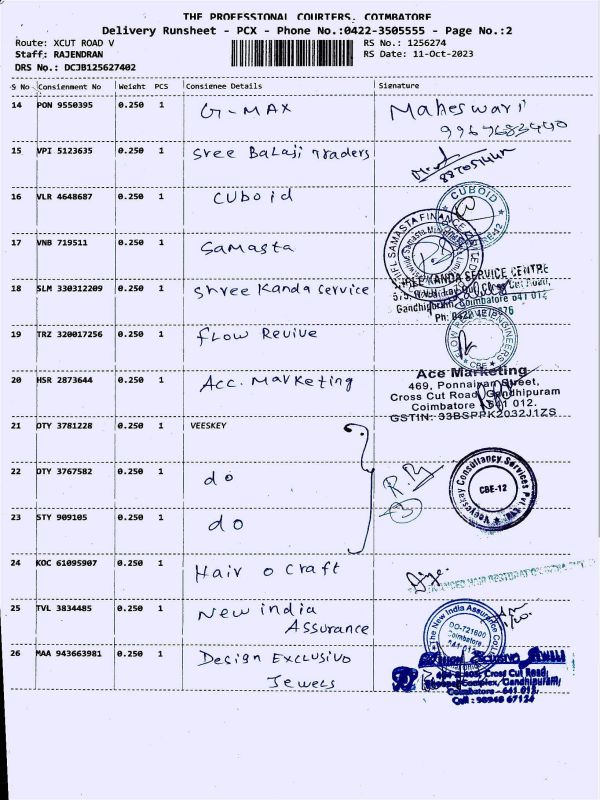 THE PROFESSIONAL COURIERS, COIMBATORE
Delivery Runsheet - PCX - Phone No.:0422-3505555 - Page No.:2
Route: XCUT ROAD V RS No.: 1256274
Staff: RAJENDRAN RS Date: 11-Oct-2023
DRS No.: DCJB125627402
S No Consignment No Weight PCS Consignee Details Signature
14 PON 9550395 0.250 1 G-MAX Maheswari
15 VPI 5123635 0.250 1 Sree Balaji Traders
16 VLR 4648687 0.250 1 Cuboid CUBOID
17 VNB 719511 0.250 1 Samasta
18 SLM 330312209 0.250 1 Shree Kanda Service
SHREE KANDA SERVICE CENTRE
Gandhipuram, Coimbatore 641 012
19 TRZ 320017256 0.250 1 Flow Revive
20 HSR 2873644 0.250 1 Acc. Marketing
Ace Marketing
469, Ponnaiyan Street,
Cross Cut Road, Gandhipuram
Coimbatore 641 012.
GSTIN: 33BSPPK2032J1ZS
21 OTY 3781228 0.250 1 VEESKEY
22 OTY 3767582 0.250 1 do
CBE-12
23 STY 909105 0.250 1 do
24 KOC 61095907 0.250 1 Hair o Craft
25 TVL 3834485 0.250 1 New india
Assurance
The New India Assurance
DO-721600
Coimbatore
26 MAA 943663981 0.250 1 Design Exclusivo
Jewels
Cross Cut Road,
Complex, Gandhipuram,
Coimbatore - 641 012.
Cell : 98940 67124